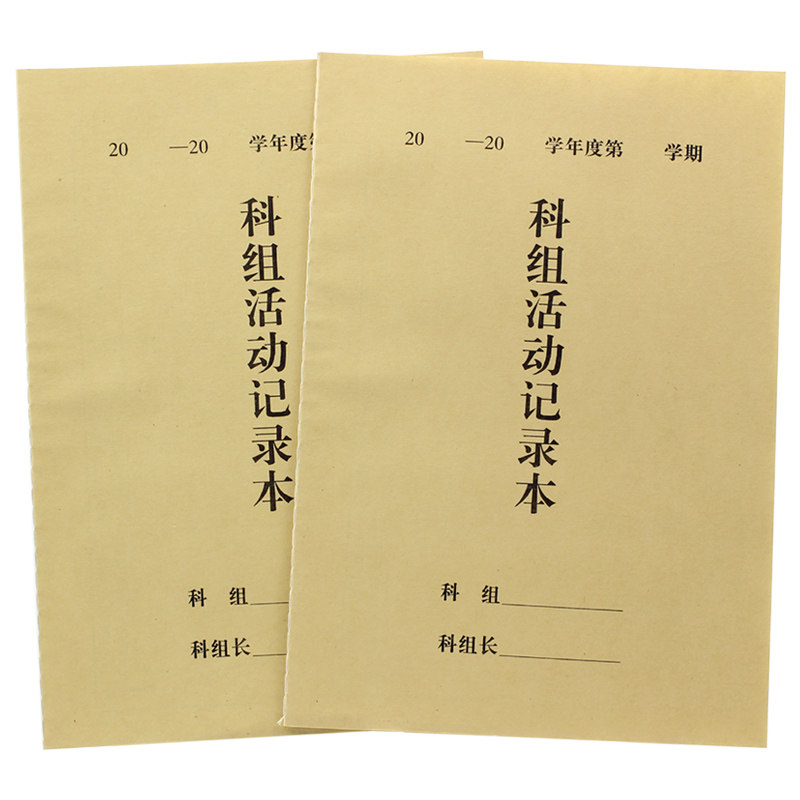 20 —20 学年度第
科组活动记录本
科 组
科组长
20 —20 学年度第 学期
科组活动记录本
科 组
科组长